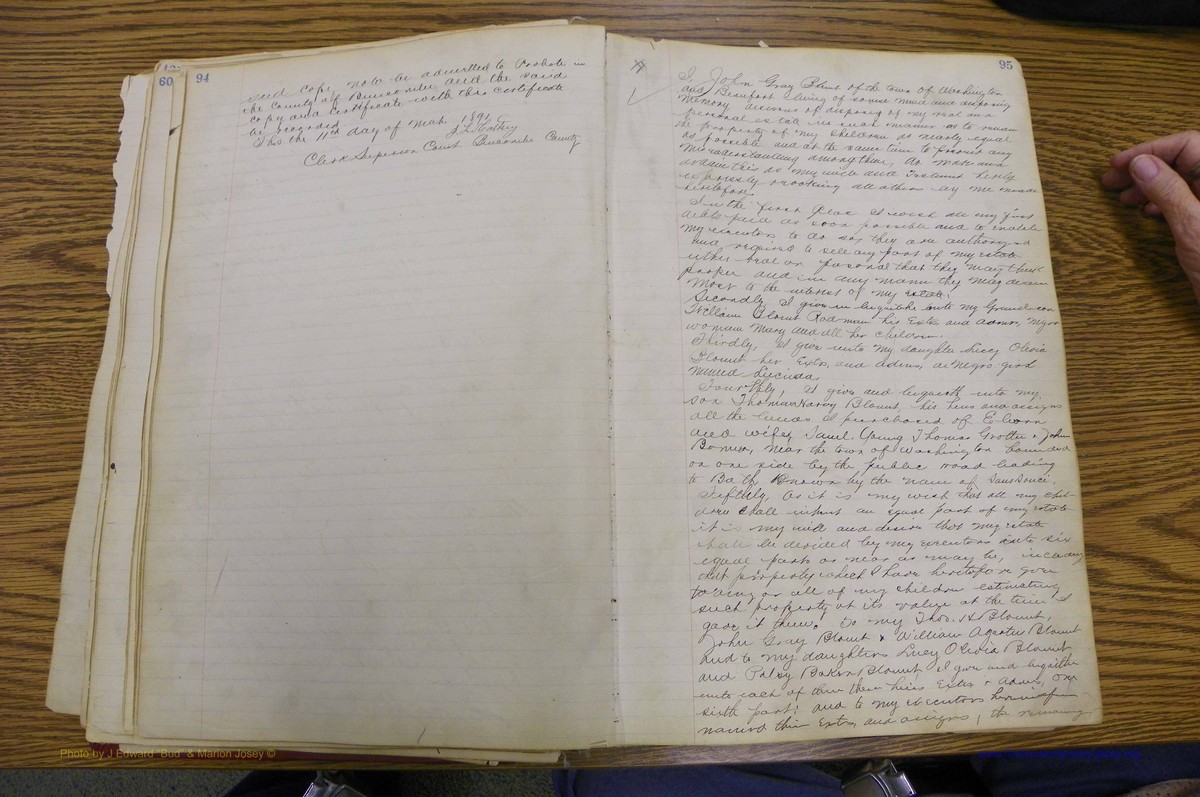 60 94
said Copy note be admitted to Probate in
the County of Buncombe and the said
copy and Certificate with this certificate
be recorded
This the 11th day of Mch 1891
Clerk Superior Court Buncombe County
95
I, John Gray Blount of the town of Washington
and Beaufort being of sound mind and disposing
memory desirous of disposing of my real and
personal estate in such manner as to make
the property of my children as nearly equal
as possible and at the same time to prevent any
misunderstanding among them, do make and
ordain this as my will and Testament hereby
expressly revoking all others by me made
heretofore.
In the first place I wish all my just
debts paid as soon possible and to enable
my executors to do so, they are authorized
and required to sell any part of my estate
either real or personal that they may think
proper and in any manner they may deem
most to the interest of my estate.
Secondly, I give unto my Grandson
William Blount Rodman his Extrs and admrs, negro
woman Mary and all her children.
Thirdly, I give unto my daughter Lucy Olivia
Blount her Extrs, and admrs, a Negro girl
named Lucinda
Fourthly, I give and bequeath unto my
son Thomas Harvey Blount, his heirs and assigns
all the lands I purchased of
and wife, Saml. Young Thomas Trotter & John
Bonner, near the town of Washington bounded
on one side by the public road leading
to Bath known by the name of Sans Souci.
Fifthly, As it is my wish that all my chil-
dren shall inherit an equal part of my estate
it is my will and desire that my estate
shall be devided by my executors into six
equal parts as near as may be, including
that property which I have heretofore given
to any or all of my children estimating
such property at its value at the time I
gave it them. To my Thos. H Blount,
John Gray Blount & William Agustus Blount
and to my daughters Lucy Olivia Blount
and Patsy Baker Blount, I give and bequeathe
unto each of them their heirs Extrs & Admrs, one
sixth part; and to my executors hereinafter
named their Extrs, and assigns, the remaining
Photo by J Edward "Bud" & Marion Josey ©